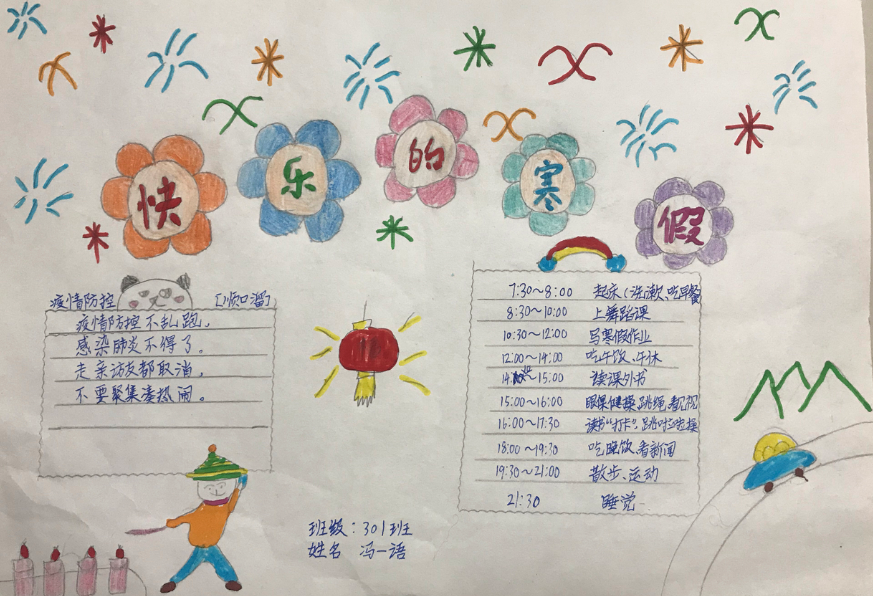 快乐的寒假
疫情防控 [顺口溜]
疫情防控不乱跑，
感染肺炎不得了。
走亲访友都取消，
不要聚集凑热闹。
7:30~8:00 起床(洗漱、吃早餐
8:30~10:00 上舞蹈课
10:30~12:00 写寒假作业
12:00~14:00 吃午饭、午休
~15:00 读课外书
15:00~16:00 眼保健操、跳绳、看电视
16:00~17:30 读书"打卡"、跳
18:00~19:30 吃晚饭、看新闻
19:30~21:00 散步、运动
21:30 睡觉
班级：301班
姓名 冯一语